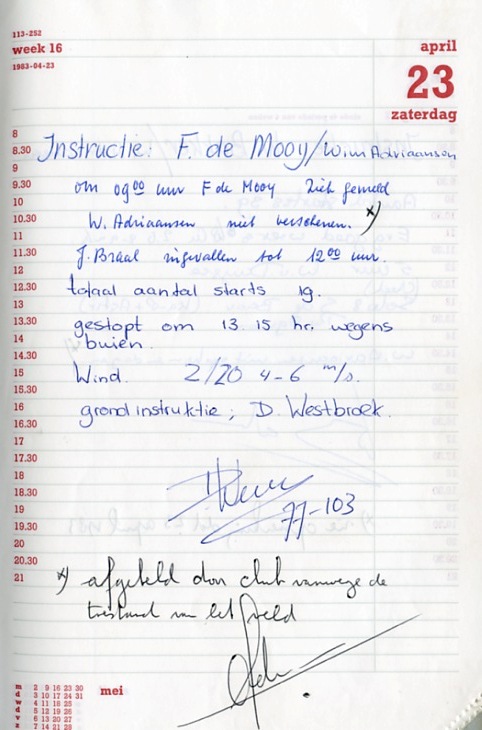 113-252
week 16
1983-04-23
april
23
zaterdag
8
8.30 Instructie: F. de Mooy/Wim Adriaansen
9
9.30 om 09⁰⁰ uur F de Mooy Zich gemeld
10
10.30 W. Adriaansen niet verschenen. *)
11
11.30 J. Braal ingevallen tot 12⁰⁰ uur.
12
12.30 totaal aantal starts 19.
13
13.30 gestopt om 13.15 hr. wegens
14 buien.
14.30
15 Wind. 2/20 4-6 m/s.
15.30
16 grondinstruktie; D. Westbroek.
16.30
17
17.30
18
18.30
19 77-103
19.30
20
20.30
21 *) afgebeld door club vanwege de
toestand van het veld
m 2 9 16 23 30
d 3 10 17 24 31
w 4 11 18 25
d 5 12 19 26
v 6 13 20 27
z 7 14 21 28
mei